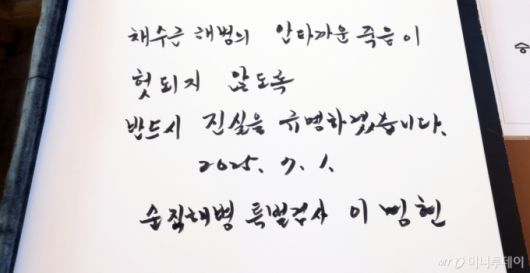 채수근 해병의 안타까운 죽음이
헛되지 않도록
반드시 진실을 규명하겠습니다.
2025. 7. 1.
순직해병 특별검사 이명현
승
머니투데이